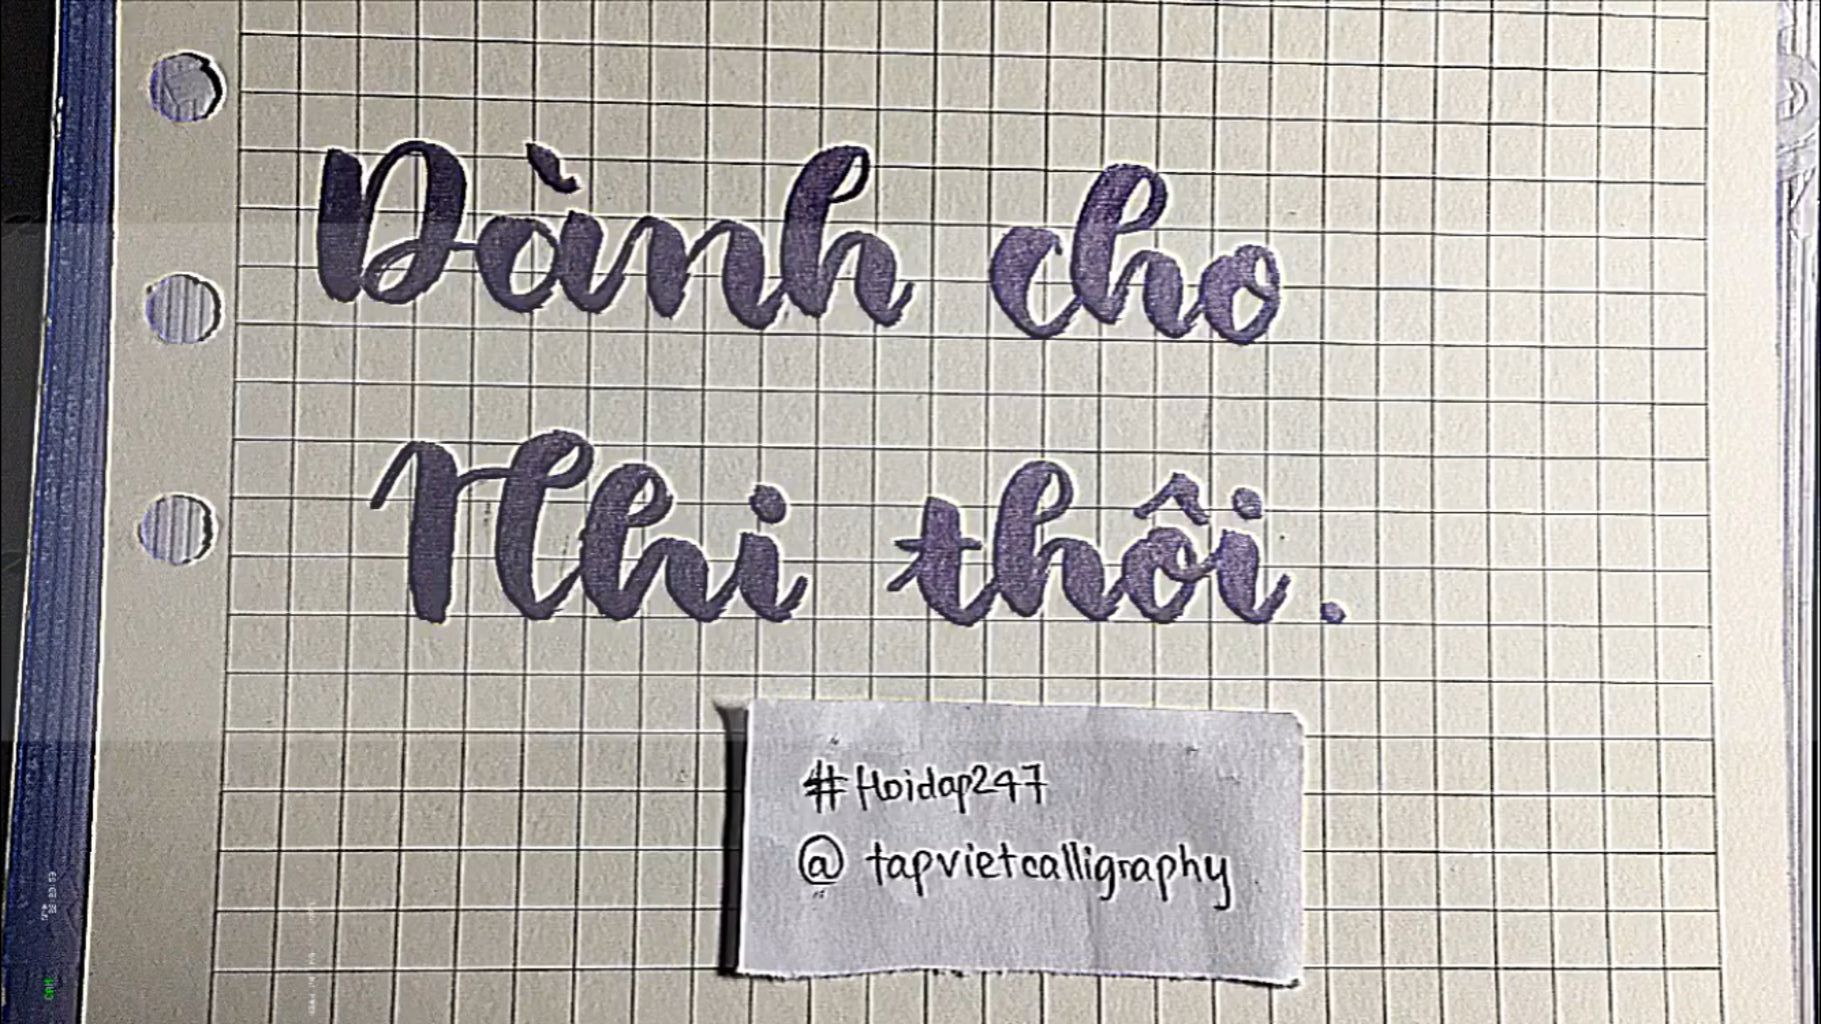 Dành cho
Nhi thôi.
#Hoidap247
@tapvietcalligraphy
CAM